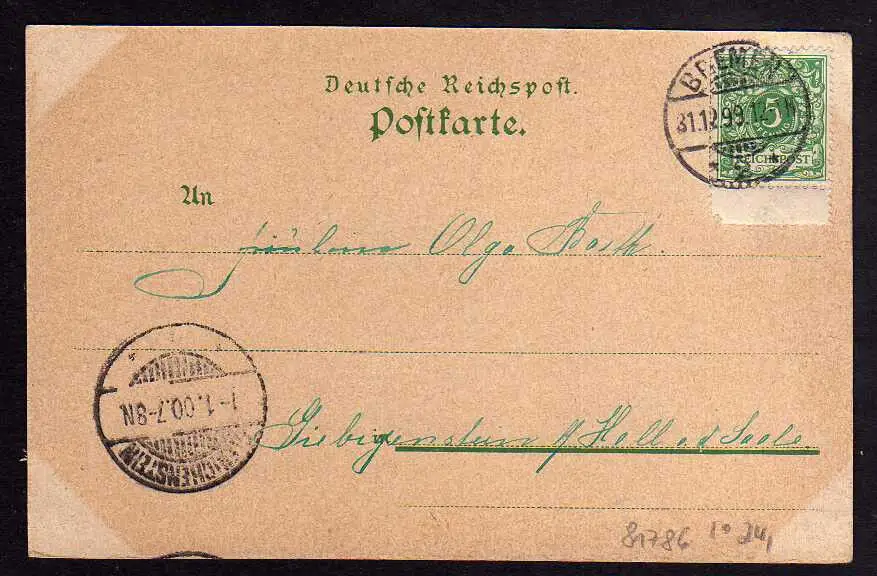 Deutsche Reichspost.
Postkarte.
BREMEN
31.12.99.12
5
REICHSPOST
An
Fräulein Olga Barth.
1-1.00.7-8N
Giebigenstein a/ Hall a. d. Saale.
81786